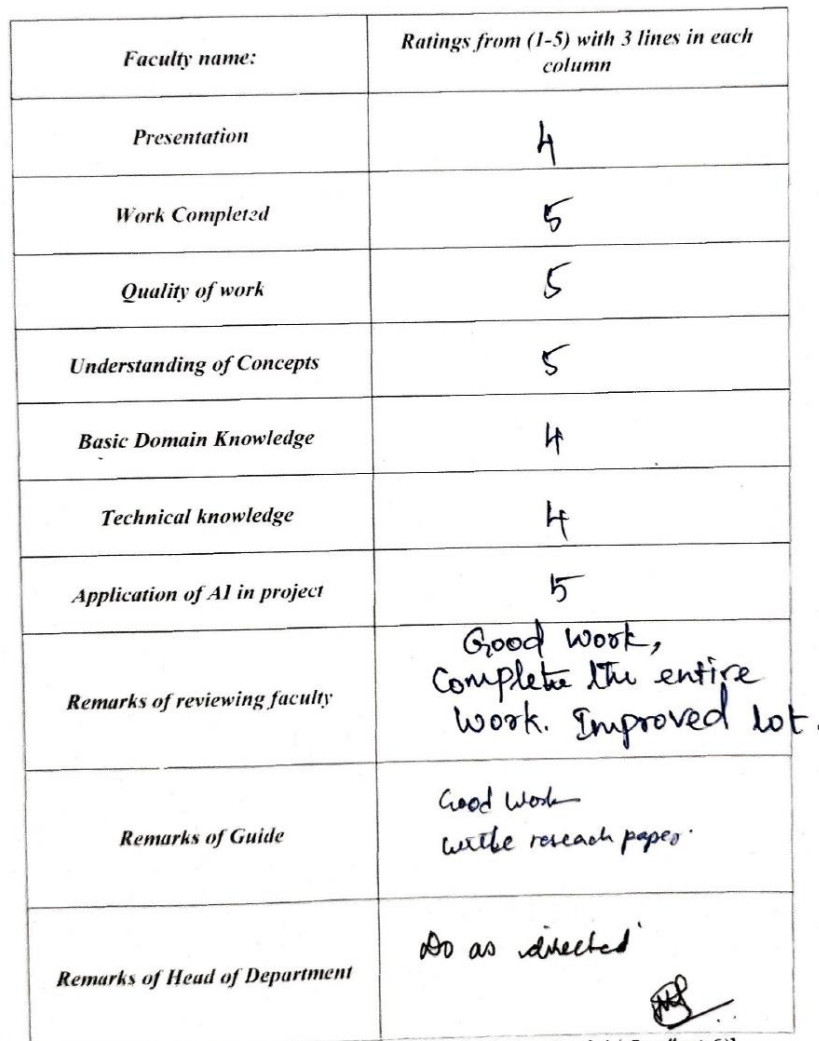 Faculty name:
Ratings from (1-5) with 3 lines in each
column
Presentation
4
Work Completed
5
Quality of work
5
Understanding of Concepts
5
Basic Domain Knowledge
4
Technical knowledge
4
Application of AI in project
5
Remarks of reviewing faculty
Good work,
Complete the entire
work. Improved lot.
Remarks of Guide
Good Work
write reseach paper.
Remarks of Head of Department
Do as directed